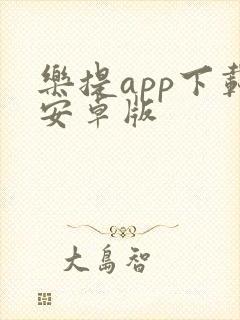 樂提app下載
安卓版
大島智